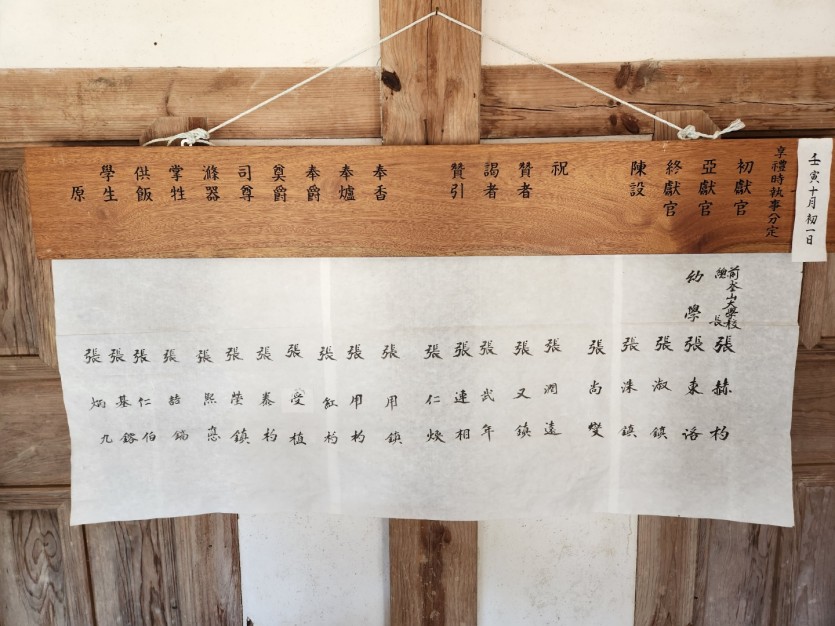 壬寅十月初一日
享禮時執事分定
初獻官
亞獻官
終獻官
陳設
祝
贊者
謁者
贊引
奉香
奉爐
奉爵
奠爵
司尊
滌器
掌牲
供飯
學生
原
前釜山大學校
總長
張赫杓
幼學
張東洛
張淑鎮
張洙鎮
張尚燮
張潤遠
張又鎮
張武年
張連相
張仁煥
張用鎮
張用杓
張紅杓
張受植
張泰杓
張瑩鎮
張熙
張
張仁伯
張基鎔
張炳九